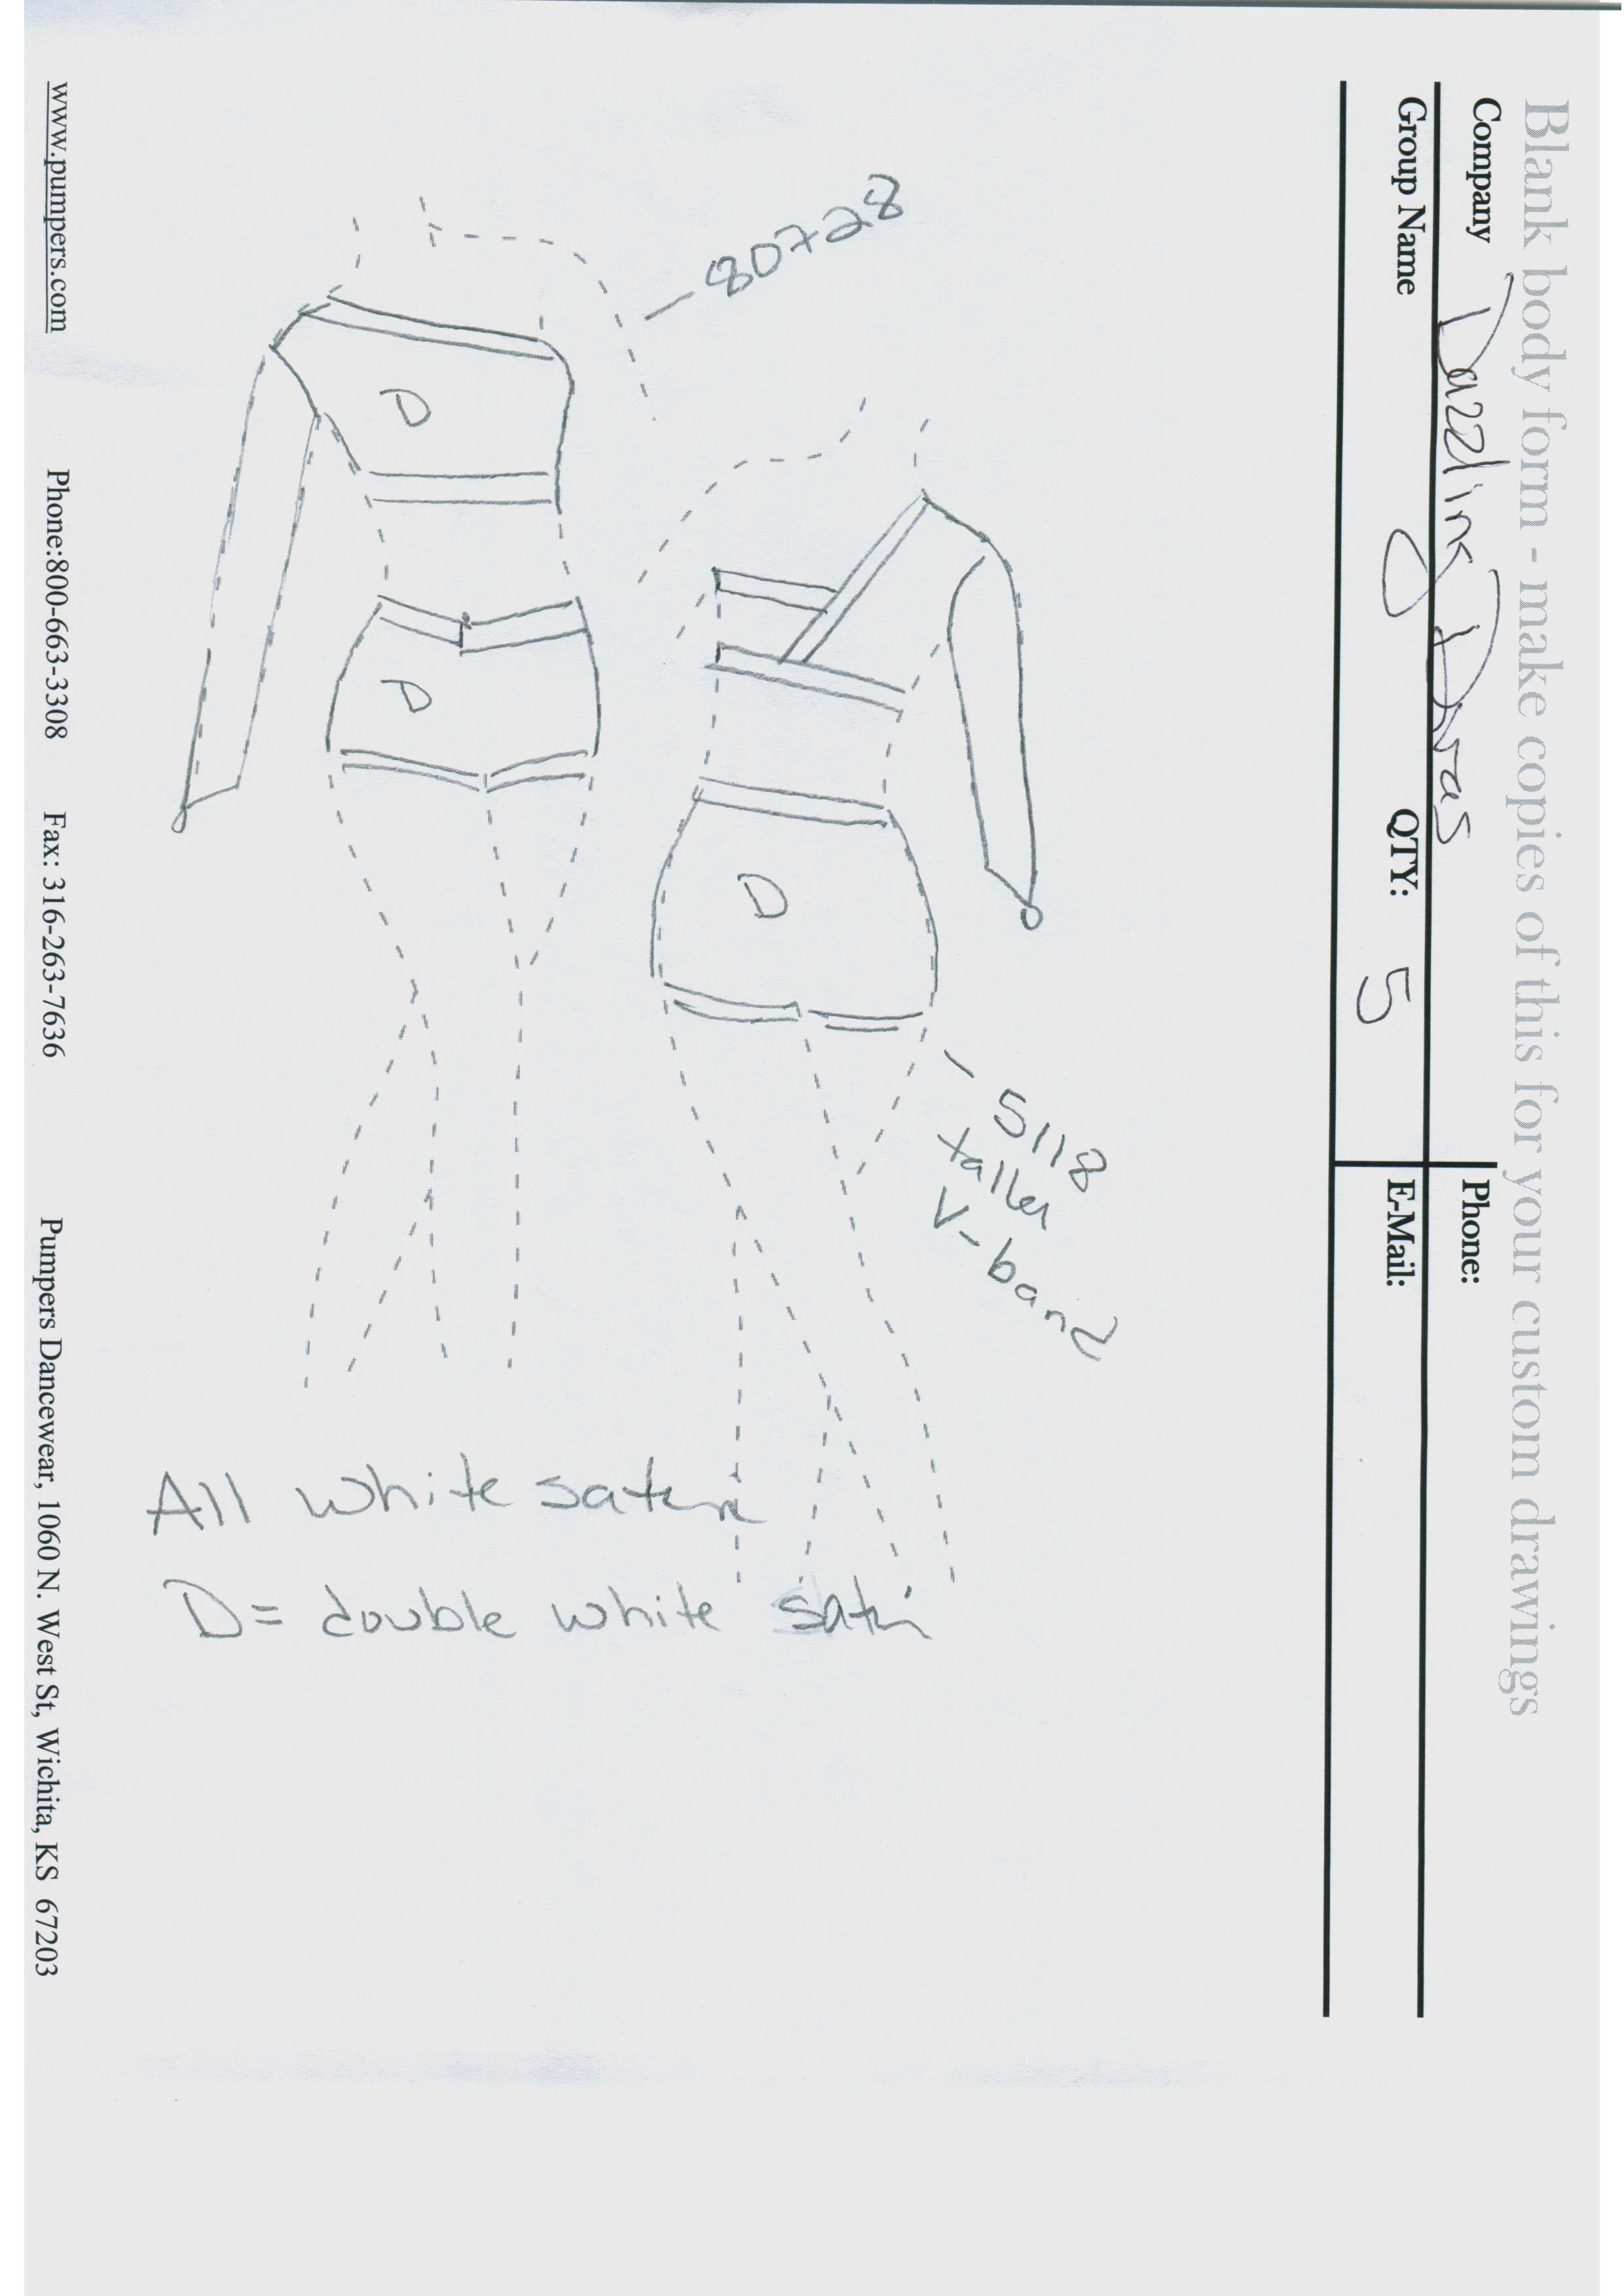 Blank body form - make copies of this for your custom drawings
Company Dazzling Divas Phone:
Group Name QTY: 5 E-Mail:
80728
5118
taller
V-band
D
D
D
All white satin
D= double white satin
www.pumpers.com Phone:800-663-3308 Fax: 316-263-7636 Pumpers Dancewear, 1060 N. West St, Wichita, KS 67203